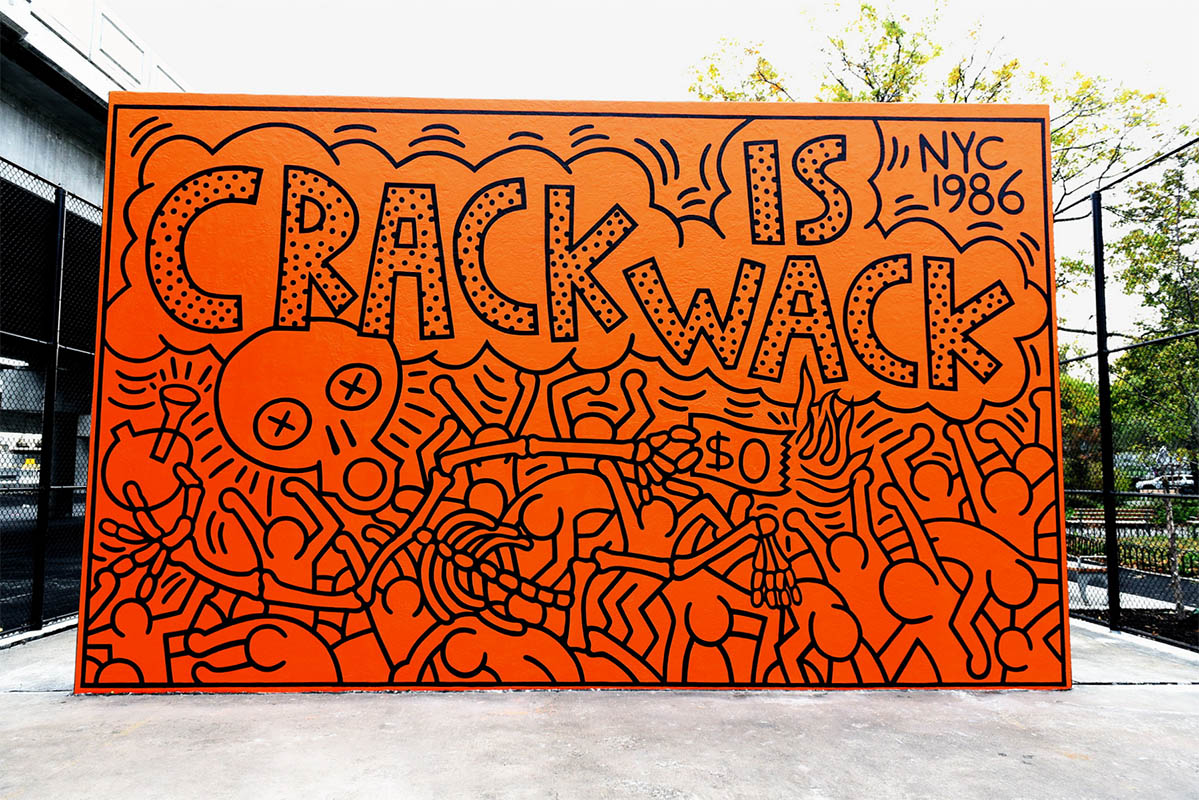 CRACK IS
WACK
NYC
1986
$0